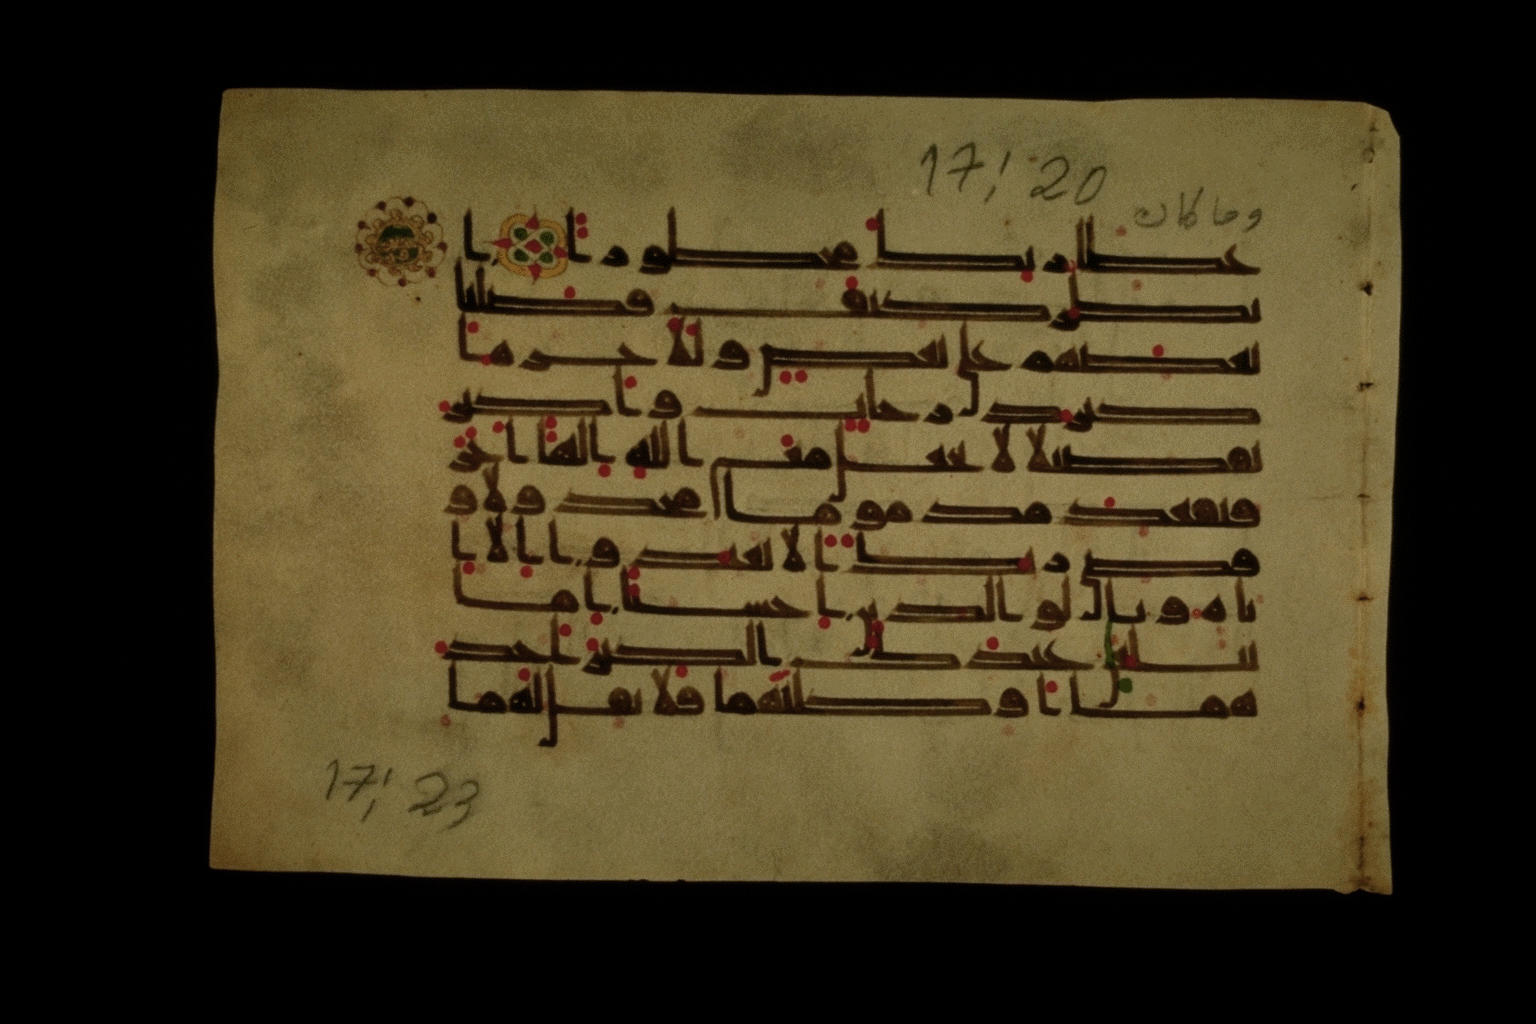 17,' 20
وما كان
عطا ربك محظورا ا
نظر كيف فضلنا
بعضهم على بعض وللاخرة ا
كبر درجات واكبر
تفضيلا لا تجعل مع الله الها اخر
فتقعد مذموما مخذولا و
قضى ربك الا تعبدوا الا ا
ياه وبالولدين احسنا اما
يبلغن عندك الكبر احد
هما او كلهما فلا تقل لهما
17,' 23